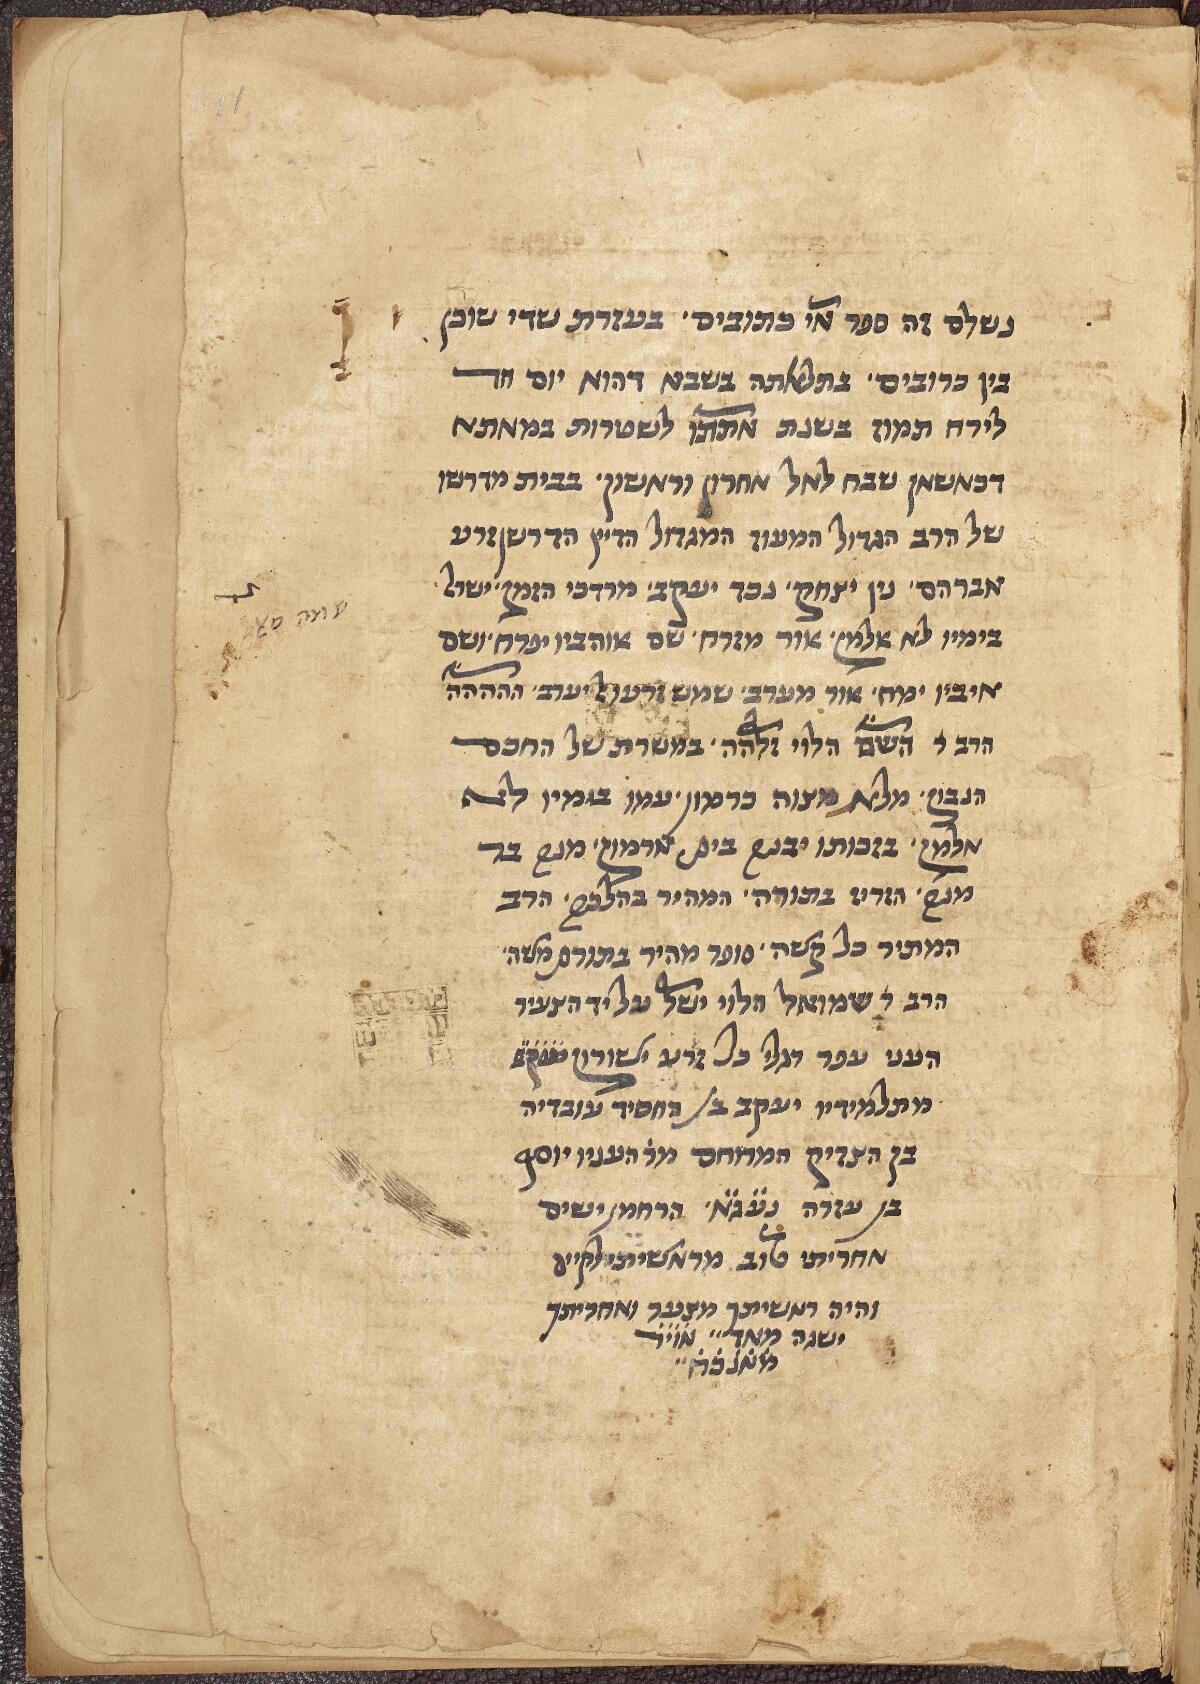 נשלם זה ספר אי כתובים׳ בעזרת שדי שוכן
בין כרובים׳ בתלאתה בשבא דהוא יום חד
לירח תמוז בשנת אתתן לשטרות במאתא
דכאשאן שבח לאל אחרון וראשון׳ בבית מדרשו
של הרב הגדול המעוז המגדול הדיין הדרשן זרע
אברהם׳ נין יצחק׳ נכד יעקב׳ מרדכי הזמן׳ ישראל
בימיו לא אלמן׳ אור מזרח׳ שם אוהביו יפרח׳ ושם
איביו ימח׳ אור מערב׳ שמש זרעו יערב׳ הההההה
הרב ר השם הלוי זלהה׳ במשרת של החכם
הנבון׳ מלא מצוה כרמון׳ עמו בימיו לא
אלמן׳ בזכותו יבנה בית ארמון׳ מנה בר
מנה׳ הזריז בתורה׳ המהיר בהלכה׳ הרב
המתיר כל קשה׳ סופר מהיר בתורת משה׳
הרב ר שמואל הלוי ישל על יד הצעיר
העני עפר רגלי כל זרע ישורון
מתלמידיו יעקב בן החסיד עובדיה
בן הצדיק המרוחם מר העניו יוסף
בן עזרה נעגא׳ הרחמן ישים
אחריתו טוב מראשיתו לקיים
והיה ראשיתך מצער ואחריתך
ישגה מאד״